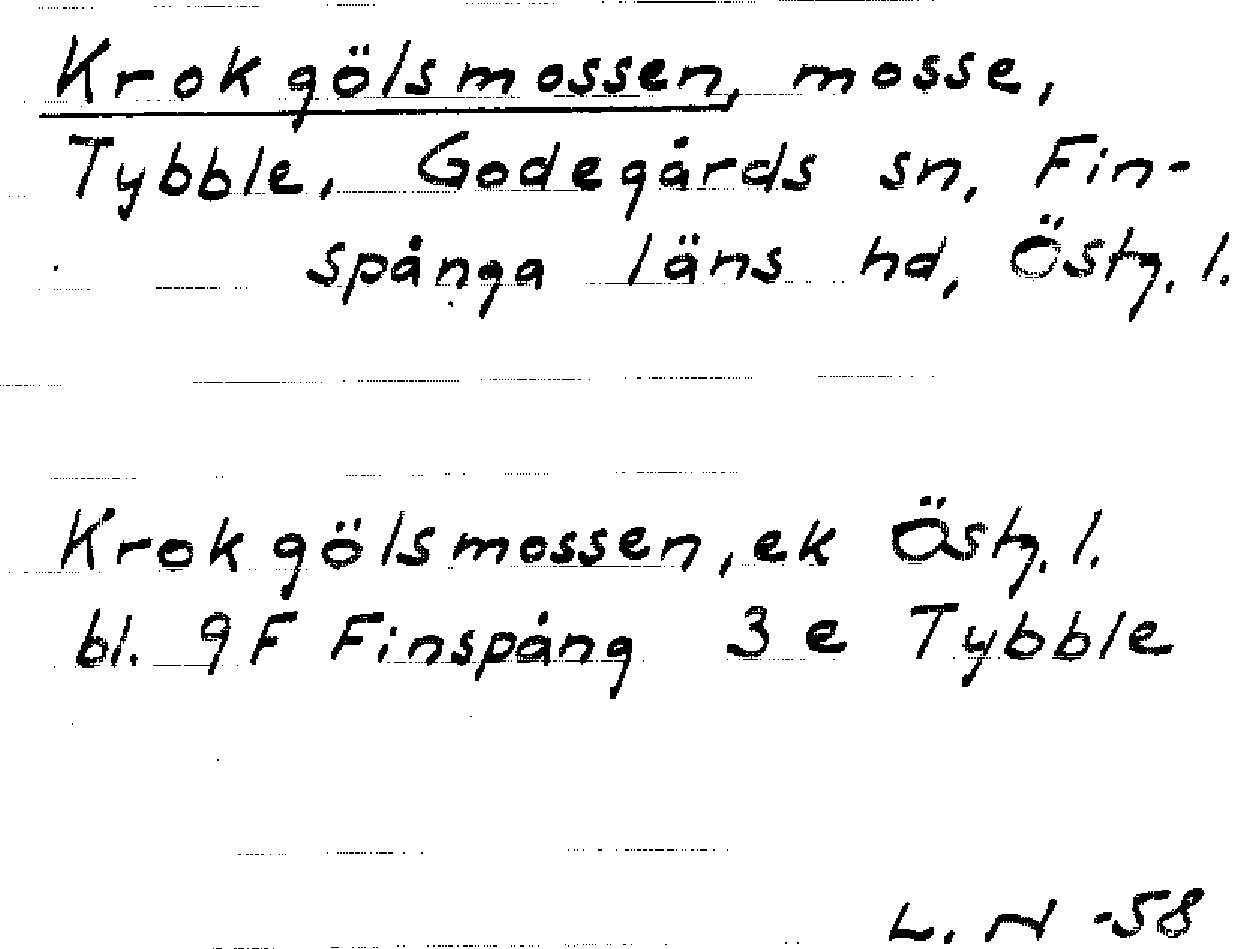 Krokgölsmossen, mosse,
Tybble, Godegårds sn, Fin-
spånga läns hd, Östg. l.
Krokgölsmossen, ek Östg. l.
bl. 9F Finspång 3e Tybble
L. N -58